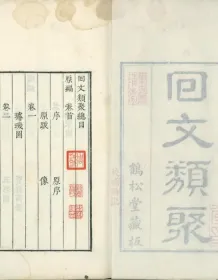 回文類聚
鶴松堂藏板
回文類聚總目
原編 卷首
序 原序
原跋 像
卷一
璿璣圖
卷二